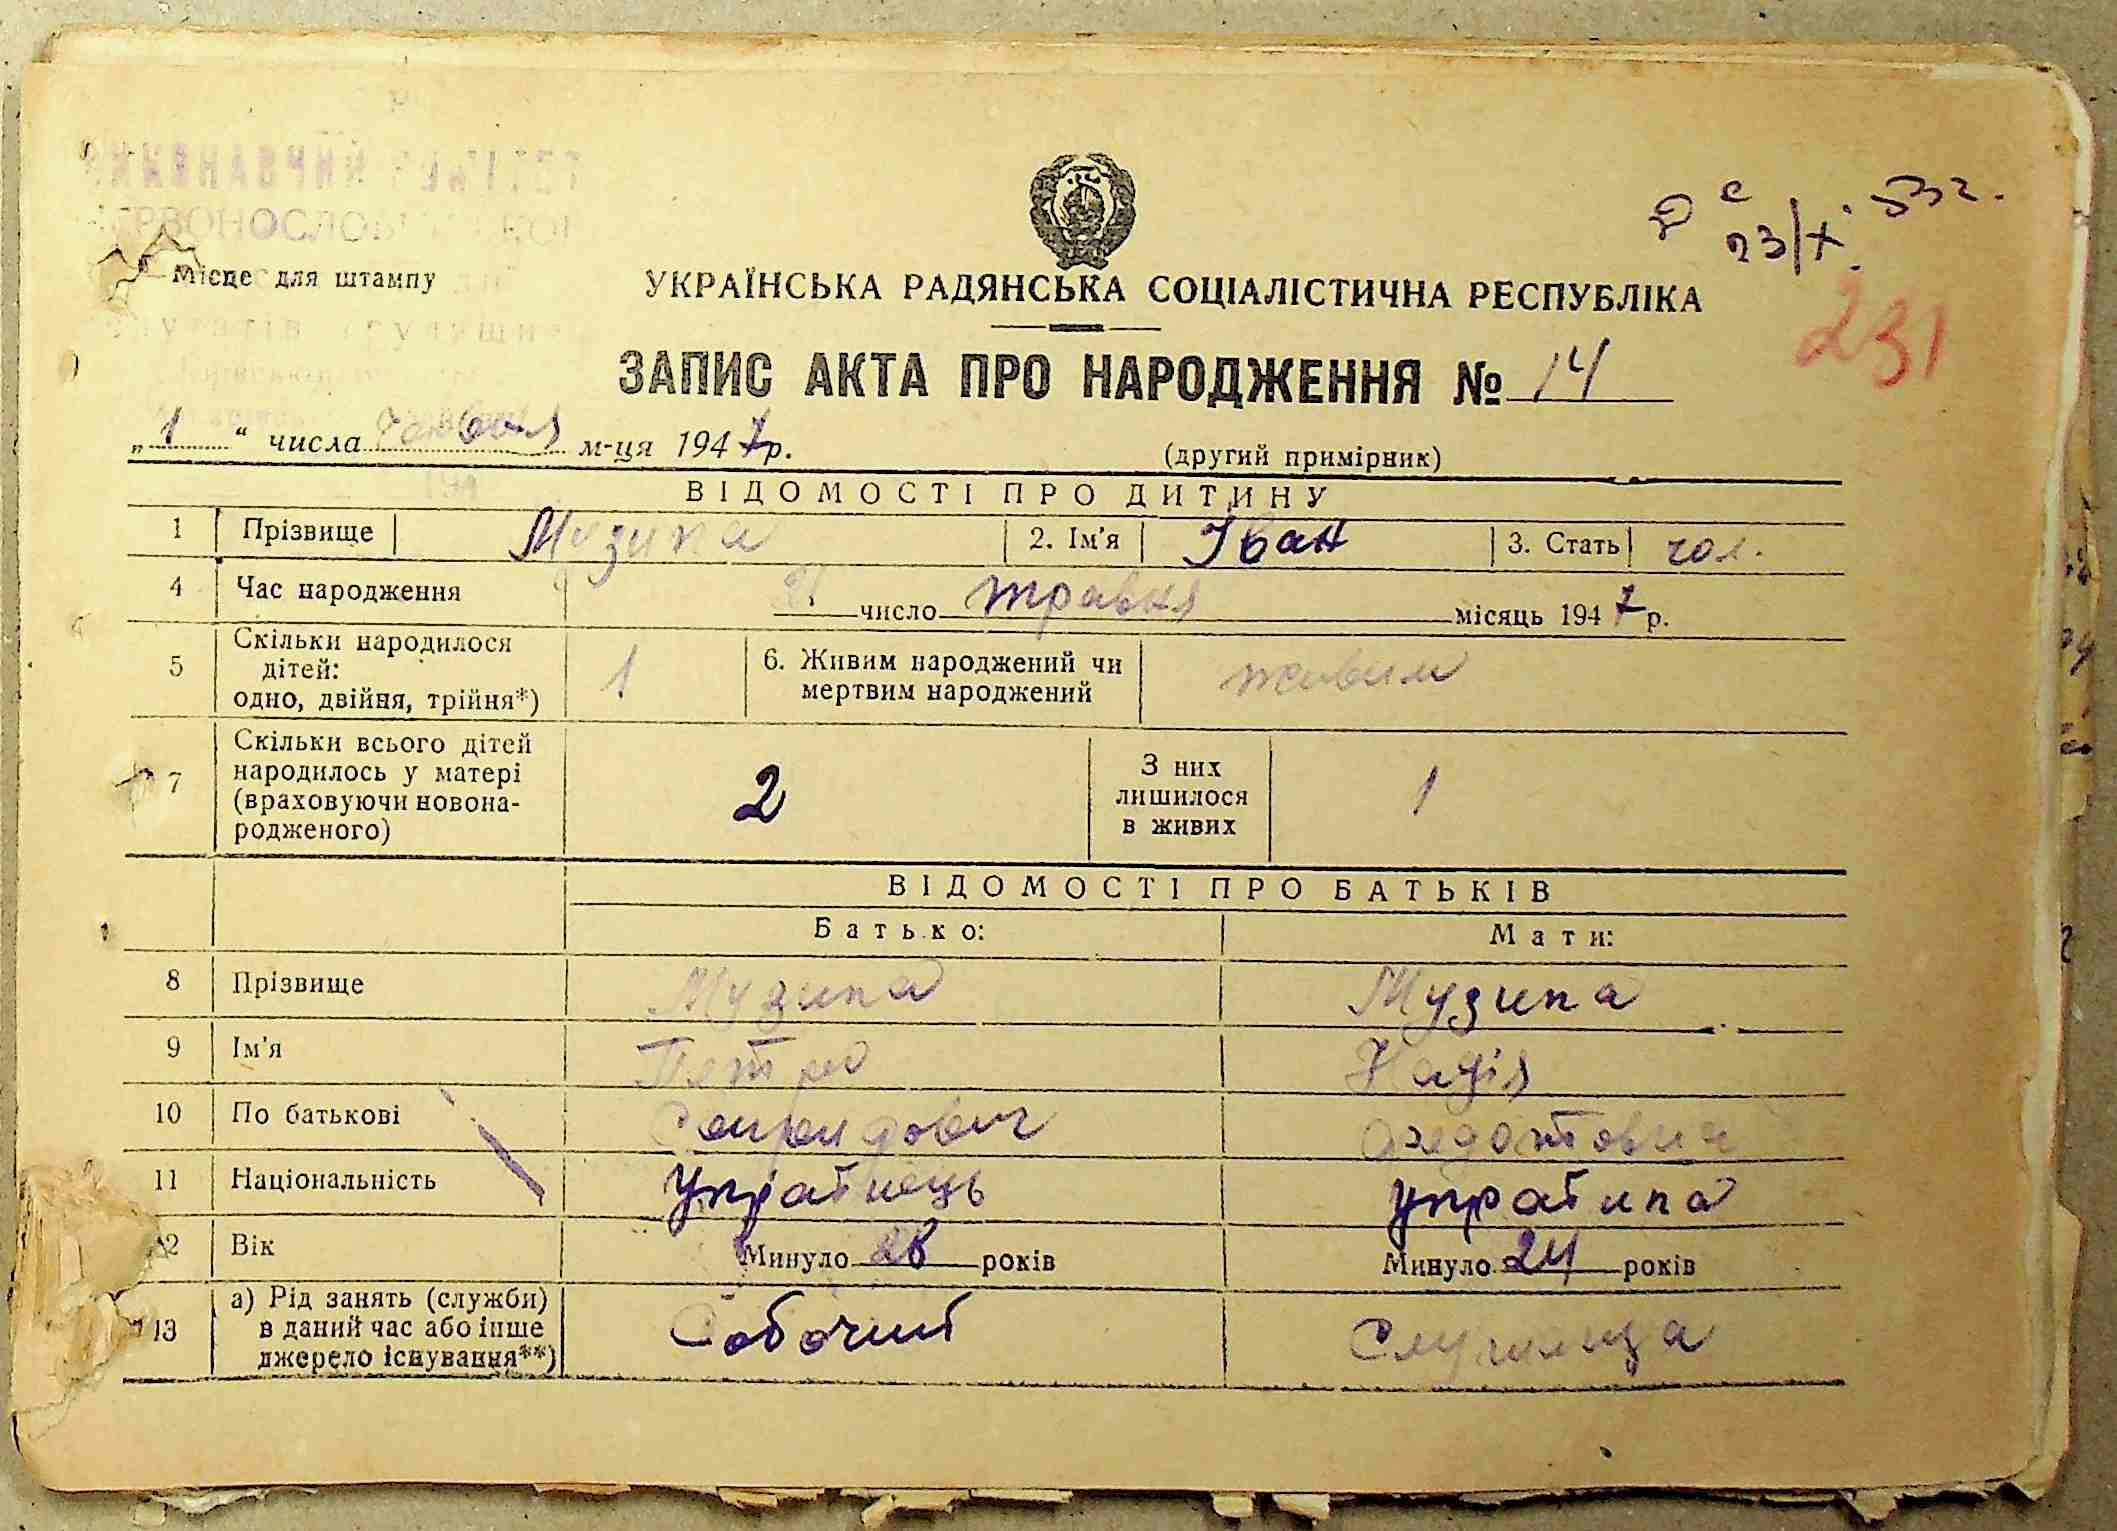 РВОНОСЛО
Місце для штампу
УКРАЇНСЬКА РАДЯНСЬКА СОЦІАЛІСТИЧНА РЕСПУБЛІКА
23/X 53 г.
231
ЗАПИС АКТА ПРО НАРОДЖЕННЯ № 14
„1“ числа червня м-ця 1947 р.
(другий примірник)
ВІДОМОСТІ ПРО ДИТИНУ
1 Прізвище Музика 2. Ім'я Іван 3. Стать чол.
4 Час народження число травня місяць 1947 р.
5 Скільки народилося дітей: одно, двійня, трійня*) 1 6. Живим народжений чи мертвим народжений живим
7 Скільки всього дітей народилось у матері (враховуючи новонародженого) 2 З них лишилося в живих 1
ВІДОМОСТІ ПРО БАТЬКІВ
Батько: Мати:
8 Прізвище Музика Музика
9 Ім'я Петро Надія
10 По батькові Федотович
11 Національність Українець українка
12 Вік Минуло років Минуло 24 років
13 а) Рід занять (служби) в даний час або інше джерело існування**)